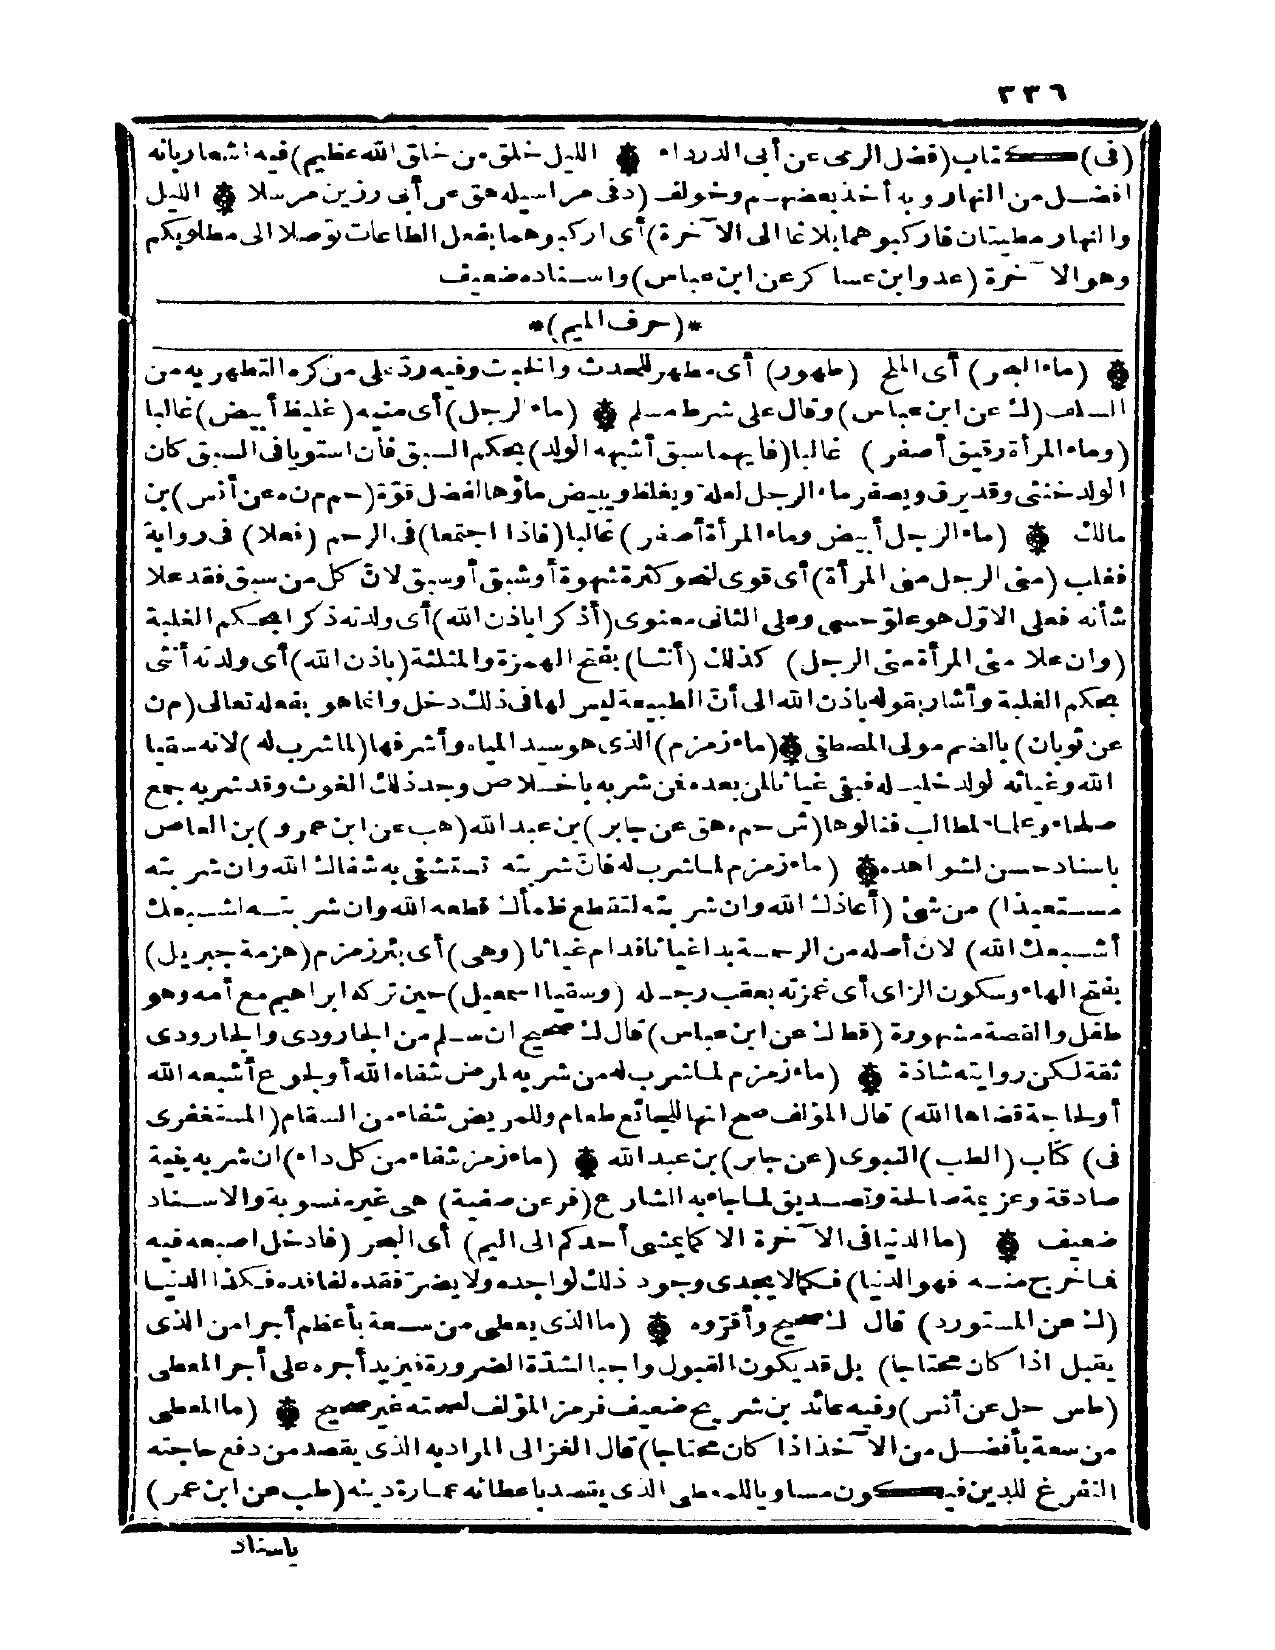 ٣٣٦
(فى) كتاب (فضل الرمى عن أبى الدرداء ۞ الليل خلق من خلق الله عظيم) فيه اشعار بانه
افضل من النهار وبه أخذ بعضهم وخولف (د فى مراسيله هق عن أبى رزين مرسلا ۞ الليل
والنهار مطيتان فاركبوهما بلاغا الى الآخرة) أى اركبوهما بفعل الطاعات توصلا الى مطلوبكم
وهو الآخرة (عد وابن عساكر عن ابن عباس) واسناده ضعيف
*(حرف الميم)*
۞ (ماء البحر) أى الملح (طهور) أى مطهر للحدث والخبث وفيه ردّ على من كره التطهر به من
السلف (ك عن ابن عباس) وقال على شرط مسلم ۞ (ماء الرجل) أى منيه (غليظ أبيض) غالبا
(وماء المرأة رقيق أصفر) غالبا (فايهما سبق أشبهه الولد) بحكم السبق فان استويا فى السبق كان
الولد خنثى وقد يرق ويصفر ماء الرجل لعلة ويغلظ ويبيض ماؤها لفضل قوّة (حم م ن ه عن أنس) بن
مالك ۞ (ماء الرجل أبيض وماء المرأة أصفر) غالبا (فاذا اجتمعا) فى الرحم (فعلا) فى رواية
فغلب (منى الرجل منى المرأة) أى قوى لنحو كثرة شهوة أو شبق أو سبق لانّ كل من سبق فقد علا
شأنه فعلى الاوّل هو علوّ حسى وعلى الثانى معنوى (أذكرا باذن الله) أى ولدته ذكرا بحكم الغلبة
(وان علا منى المرأة منى الرجل) كذلك (أنثا) بفتح الهمزة والمثلثة (باذن الله) أى ولدته أنثى
بحكم الغلبة وأشار بقوله باذن الله الى أنّ الطبيعة ليس لها فى ذلك دخل وانما هو بفعله تعالى (م ن
عن ثوبان) بالضم مولى المصطفى ۞ (ماء زمزم) الذى هو سيد المياه وأشرفها (لما شرب له) لانه سقيا
الله وغياثه لولد خليله فبقى غياثا لمن بعده فمن شربه باخلاص وجد ذلك الغوث وقد شربه جمع
صلحاء وعلماء لمطالب فنالوها (ش حم ه هق عن جابر) بن عبد الله (هب عن ابن عمرو) بن العاص
باسناد حسن لشواهده ۞ (ماء زمزم لما شرب له فان شربته تستشفى به شفاك الله وان شربته
مستعيذا) من شئ (أعاذك الله وان شربته لتقطع ظمأك قطعه الله وان شربته لشبعك
أشبعك الله) لان أصله من الرحمة بدا غياثا فدام غياثا (وهى) أى بئر زمزم (هزمة جبريل)
بفتح الهاء وسكون الزاى أى غمزته بعقب رجله (وسقيا اسمعيل) حين تركه ابراهيم مع أمه وهو
طفل والقصة مشهورة (قط ك عن ابن عباس) قال ك صحيح ان سلم من الجارودى والجارودى
ثقة لكن روايته شاذة ۞ (ماء زمزم لما شرب له من شربه لمرض شفاه الله أو لجوع أشبعه الله
أو لحاجة قضاها الله) قال المؤلف صح انها للجائع طعام وللمريض شفاء من السقام (المستغفرى
فى) كتاب (الطب) النبوى (عن جابر) بن عبد الله ۞ (ماء زمزم شفاء من كل داء) ان شربه بنية
صادقة وعزيمة صالحة وتصديق لما جاء به الشارع (فر عن صفية) هى غير منسوبة والاسناد
ضعيف ۞ (ما الدنيا فى الآخرة الا كما يمشى أحدكم الى اليم) أى البحر (فادخل اصبعه فيه
فما خرج منه فهو الدنيا) فكما لا يجدى وجود ذلك لواجده ولا يضرّ فقده لفاقده فكذا الدنيا
(ك عن المستورد) قال ك صحيح وأقرّوه ۞ (ما الذى يعطى من سعة بأعظم أجرا من الذى
يقبل اذا كان محتاجا) بل قد يكون القبول واجبا لشدّة الضرورة فيزيد أجره على أجر المعطى
(طس حل عن أنس) وفيه عائذ بن شريح ضعيف فرمز المؤلف لصحته غير صحيح ۞ (ما المعطى
من سعة بأفضل من الآخذ اذا كان محتاجا) قال الغزالى المراد به الذى يقصد من دفع حاجته
التفرغ للدين فيكون مساويا للمعطى الذى يقصد باعطائه عمارة دينه (طب عن ابن عمر)
باسناد